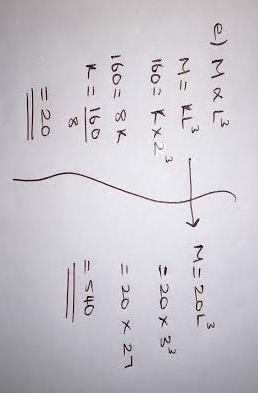 e) M ∝ L³
M = KL³
160 = K × 2³
160 = 8K
K = 160
8
= 20
M = 20L³
= 20 × 3³
= 20 × 27
= 540